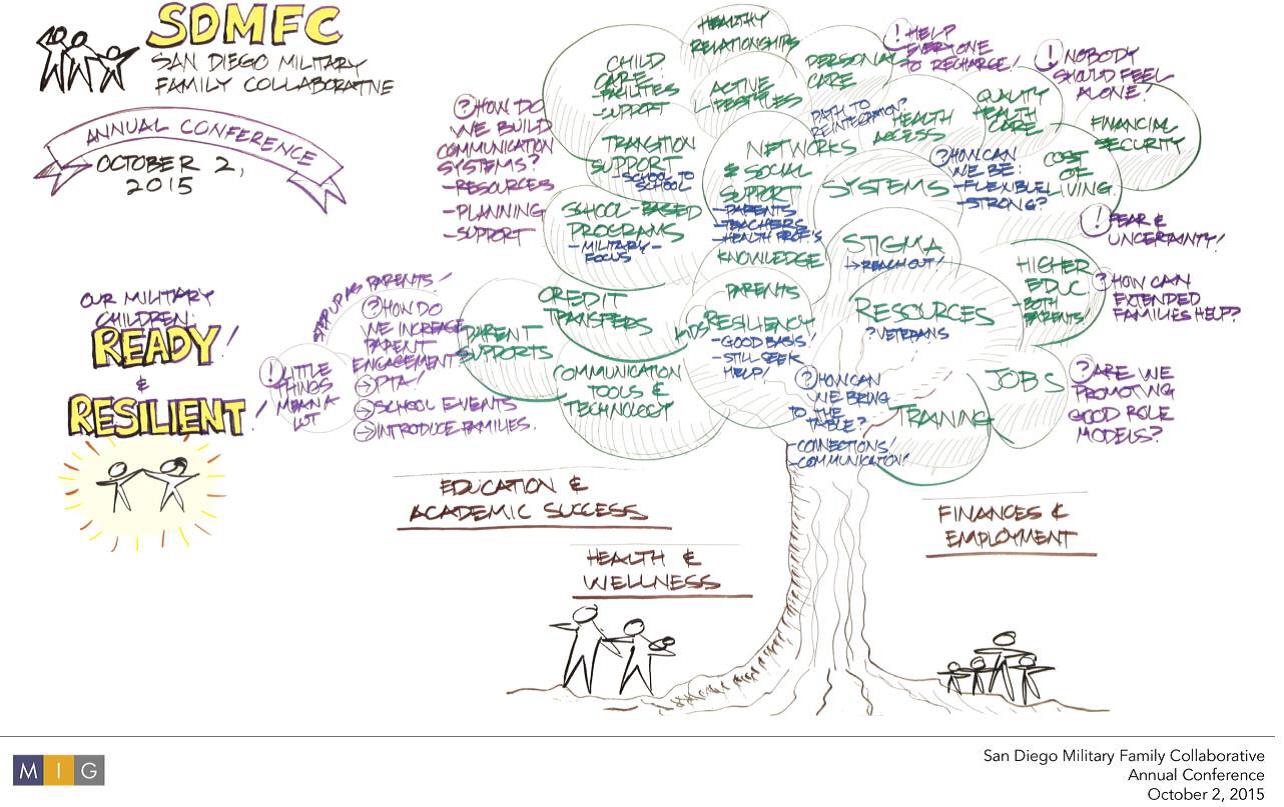 SDMFC
SAN DIEGO MILITARY
FAMILY COLLABORATIVE
ANNUAL CONFERENCE
OCTOBER 2,
2015
OUR MILITARY
CHILDREN:
READY!
&
RESILIENT!
? HOW DO
WE BUILD
COMMUNICATION
SYSTEMS?
-RESOURCES
-PLANNING
-SUPPORT
STEP UP AS PARENTS!
? HOW DO
WE INCREASE
PARENT
ENGAGEMENT?
→ PTA!
→ SCHOOL EVENTS
→ INTRODUCE FAMILIES.
! LITTLE
THINGS
MEAN A
LOT
CHILD
CARE:
-FACILITIES
-SUPPORT
HEALTHY
RELATIONSHIPS
ACTIVE
LIFESTYLES
PERSONAL
CARE
! HELP
EVERYONE
TO RECHARGE!
! NOBODY
SHOULD FEEL
ALONE!
PATH TO
REINTEGRATION?
HEALTH
ACCESS
QUALITY
HEALTH
CARE
FINANCIAL
SECURITY
TRANSITION
SUPPORT
-SCHOOL TO
SCHOOL
NETWORKS
& SOCIAL
SUPPORT
-PARENTS
-TEACHERS
-HEALTH PROF'S
KNOWLEDGE
SYSTEMS
? HOW CAN
WE BE:
-FLEXIBLE!
-STRONG?
COST
OF
LIVING
! FEAR &
UNCERTAINTY!
SCHOOL-BASED
PROGRAMS
-MILITARY-
FOCUS
STIGMA
→REACH OUT!
HIGHER
EDUC
-BOTH
PARENTS!
? HOW CAN
EXTENDED
FAMILIES HELP?
CREDIT
TRANSFERS
PARENT
SUPPORTS
COMMUNICATION
TOOLS &
TECHNOLOGY
PARENTS
KIDS
RESILIENCY
-GOOD BASIS!
-STILL SEEK
HELP!
RESOURCES
? VETERANS
? HOW CAN
WE BRING
TO THE
TABLE?
-CONNECTIONS!
-COMMUNICATION!
TRAINING
JOBS
? ARE WE
PROMOTING
GOOD ROLE
MODELS?
EDUCATION &
ACADEMIC SUCCESS
HEALTH &
WELLNESS
FINANCES &
EMPLOYMENT
M I G
San Diego Military Family Collaborative
Annual Conference
October 2, 2015